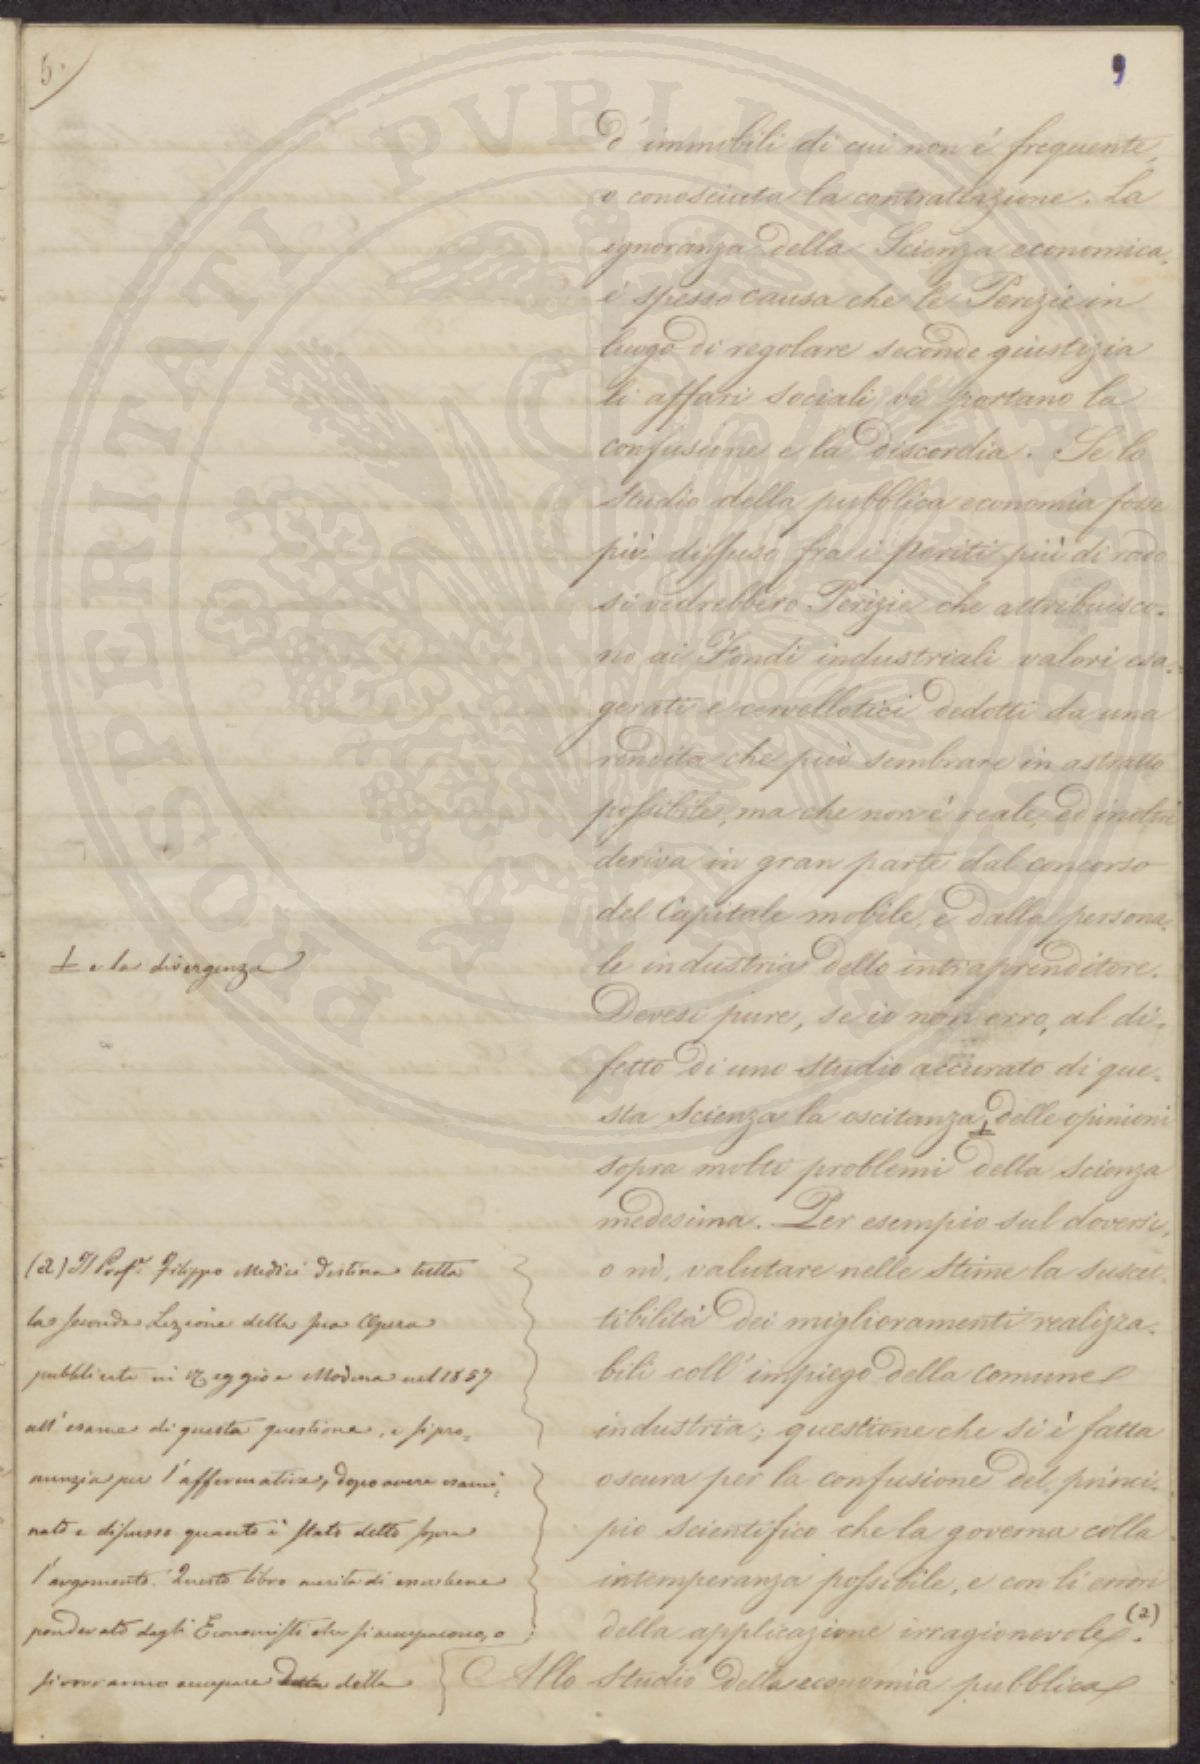 5.
9
d'immobili di cui non é frequente,
o conosciuta la contrattazione. La
ignoranza della Scienza economica,
é spesso causa che le Perizie in
luogo di regolare secondo giustizia
li affari sociali vi portano la
confusione e la discordia. Se lo
studio della pubblica economia fosse
più diffuso fra i Periti più di rado
si vedrebbero Perizie che attribuisco-
no ai Fondi industriali valori esa-
gerati e cervellotici dedotti da una
rendita che può sembrare in astratto
possibile, ma che non é reale, ed inoltre
deriva in gran parte dal concorso
del Capitale mobile, e dalla persona-
le industria dello intraprenditore.
Devesi pure, se io non erro, al di-
fetto di uno studio accurato di que-
sta scienza la oscitanza ⊥ delle opinioni
sopra molti problemi della scienza
medesima. Per esempio sul doversi,
o nò, valutare nelle stime la suscet-
tibilità dei miglioramenti realizza-
bili coll'impiego della comune
industria; questione che si è fatta
oscura per la confusione del princi-
pio scientifico che la governa colla
intemperanza possibile, e con li errori
della applicazione irragionevole (a).
Allo studio della economia pubblica
⊥ e la divergenza
(a) Il Prof.r Filippo Medici destina tutta
la seconda Lezione della sua Opera
pubblicata in Reggio e Modena nel 1857
all'esame di questa questione, e si pro=
nunzia per l'affermativa, dopo avere esami=
nato e discusso quanto è stato detto sopra
l'argomento. Questo libro merita di esser bene
ponderato dagli Economisti che si occupano, o
si vorranno occupare della
PROSPERITATI PUBLICAE